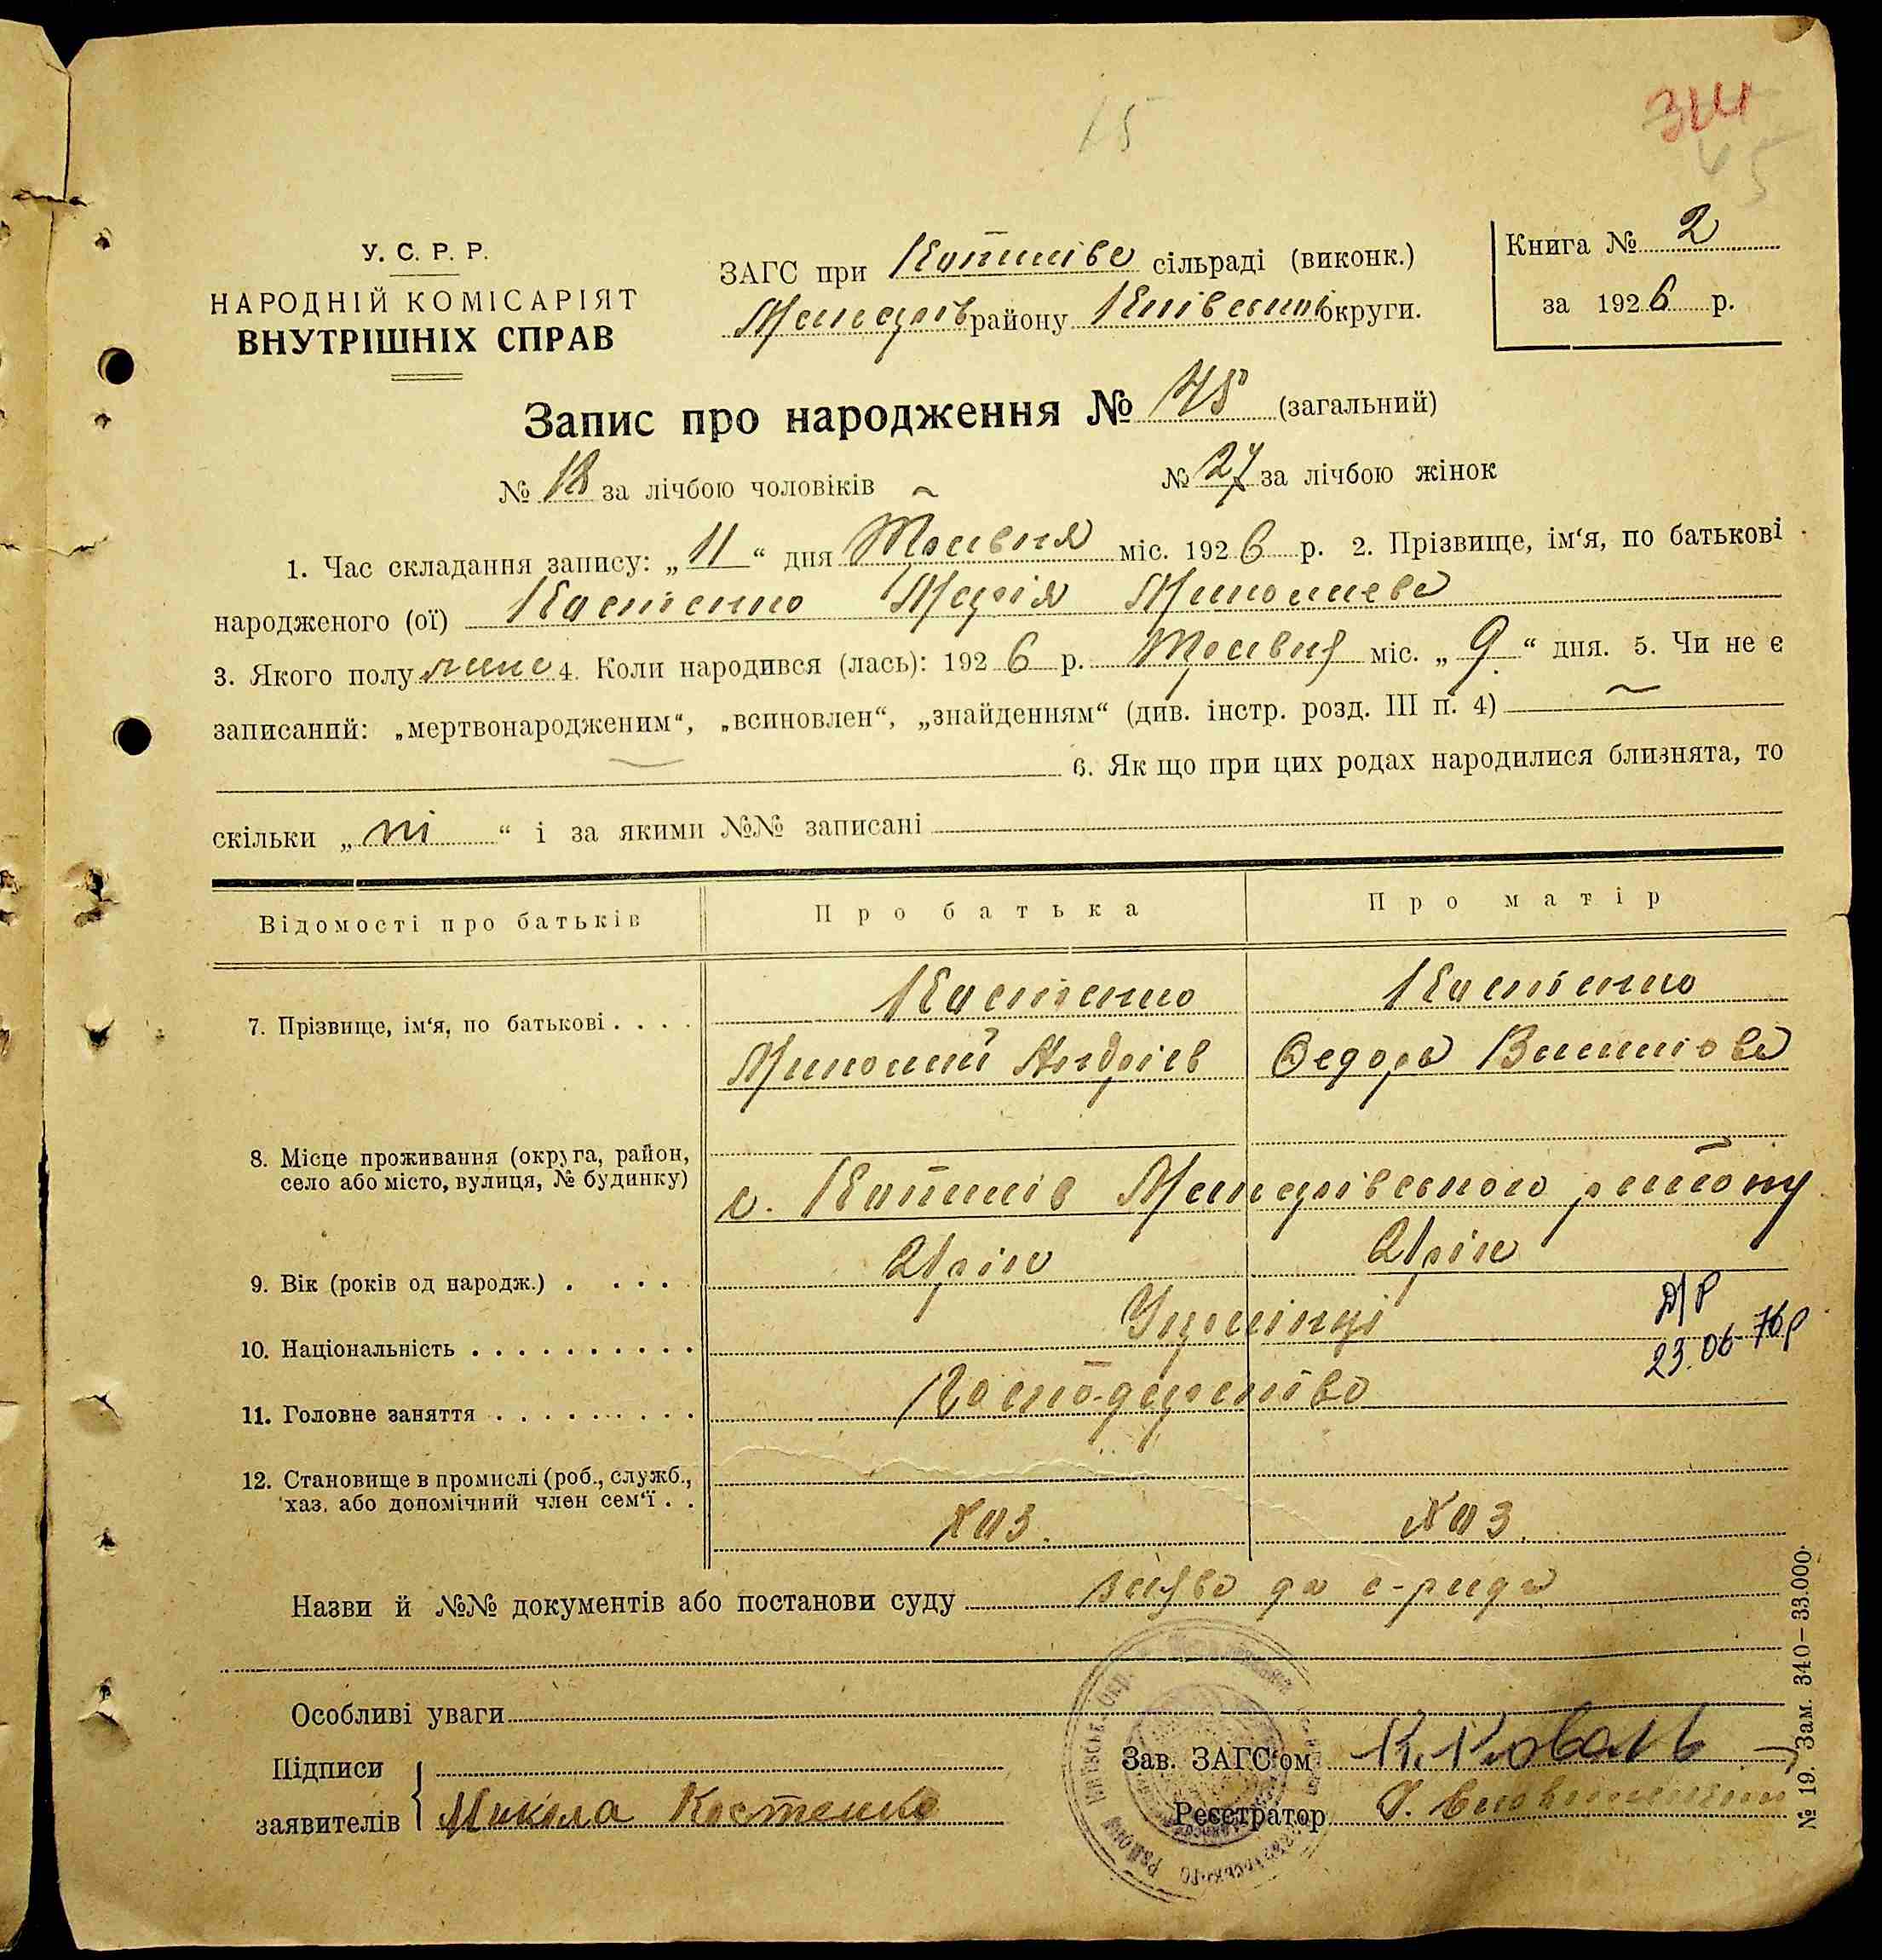 15
314
45
У. С. Р. Р.
НАРОДНІЙ КОМІСАРІЯТ
ВНУТРІШНІХ СПРАВ
ЗАГС при Копиліве сільраді (виконк.)
Макарів району Київської округи.
Книга № 2
за 1926 р.
Запис про народження № 45 (загальний)
№ 18 за лічбою чоловіків № 27 за лічбою жінок
1. Час складання запису: „11“ дня Травня міс. 1926 р. 2. Прізвище, ім‘я, по батькові
народженого (ої) Костенко Марія Миколаева
3. Якого полу жіно 4. Коли народився (лась): 1926 р. Травня міс. „9“ дня. 5. Чи не є
записаний: „мертвонародженим“, „всиновлен“, „знайденням“ (див. інстр. розд. III п. 4)
6. Як що при цих родах народилися близнята, то
скільки „ні“ і за якими №№ записані
Відомості про батьків Про батька Про матір
7. Прізвище, ім‘я, по батькові . . . .
Костенко
Миколай Андріев
Костенко
Федора Василова
8. Місце проживання (округа, район,
село або місто, вулиця, № будинку)
с. Копилів Макарівського району
9. Вік (років од народж.) . . . . 21 рік 21 рік
10. Національність . . . . . . . . . . Українці
Д/Р
23.06-76р
11. Головне заняття . . . . . . . . . . Господарство
12. Становище в промислі (роб., служб.,
хаз. або допомічний член сем‘ї . .
хаз. хаз.
Назви й №№ документів або постанови суду заява до с-ради
Особливі уваги
Підписи
заявителів
Микола Костенко
Зав. ЗАГС‘ом К. Коваль
Реєстратор
№ 19. Зам. 340–33.000.